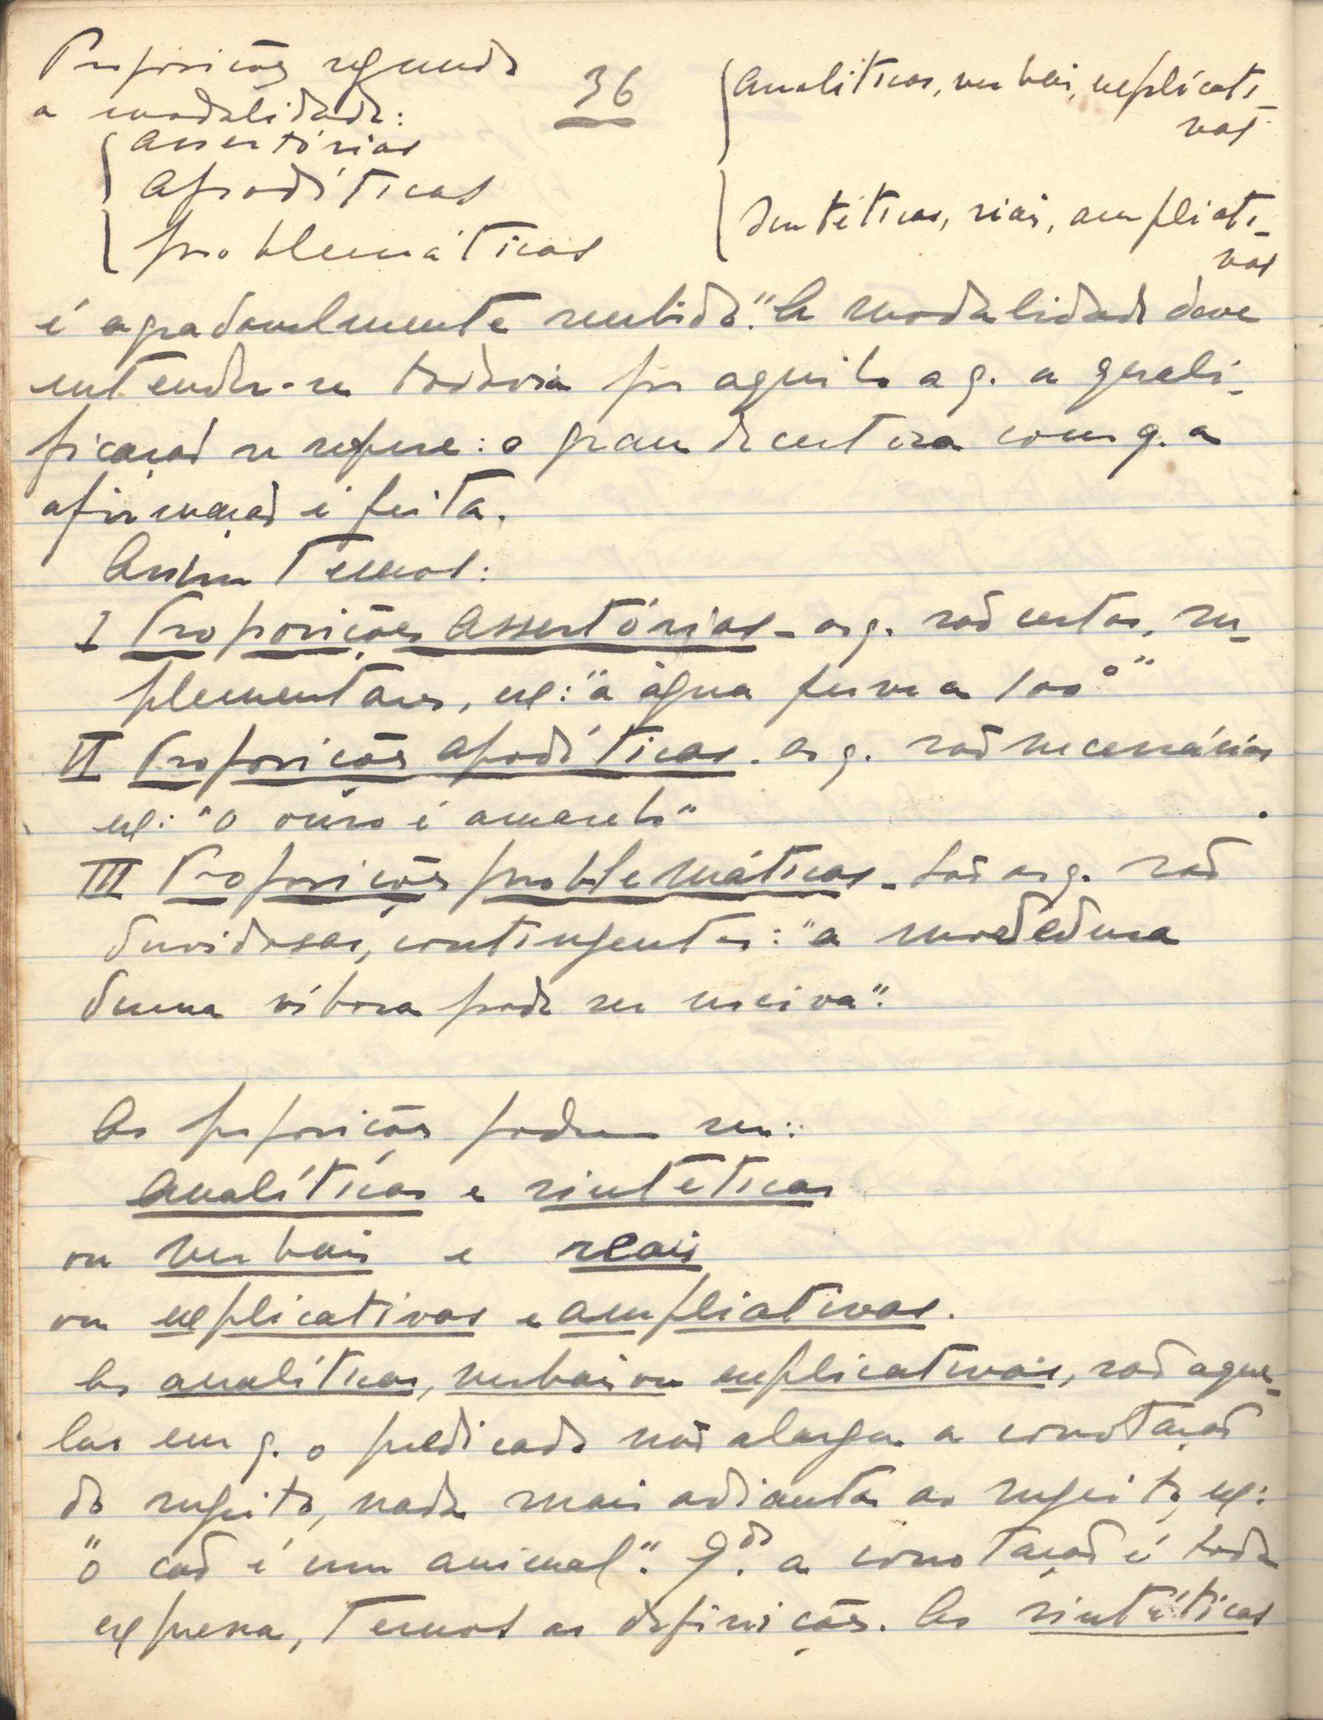 Proposições segundo
a modalidade:
assertórias
apodíticas
problemáticas
36
analíticas, verbais, explicati-
vas
sintéticas, riais, ampliati-
vas
é agradavelmente sentido". A modalidade deve
entender-se todavia por aquilo a q. a quali-
ficação se refere: o grau de certeza com q. a
afirmação é feita.
Assim temos:
I Proposições assertórias - as q. são certas,
plementares, ex: "a água ferve a 100°"
II Proposições apodíticas - as q. são necessárias
ex: "o ouro é amarelo"
III Proposições problemáticas - são as q. são
duvidosas, contingentes: "a mordedura
duma víbora pode ser nociva".
As proposições podem ser:
analíticas e sintéticas
ou verbais e reais
ou explicativas e ampliativas.
As analíticas, verbais ou explicativas, são aque-
las em q. o predicado não alarga a conotação
do sujeito, nada mais adianta ao sujeito, ex:
"o cão é um animal". Q.do a conotação é toda
expressa, temos as definições. As sintéticas